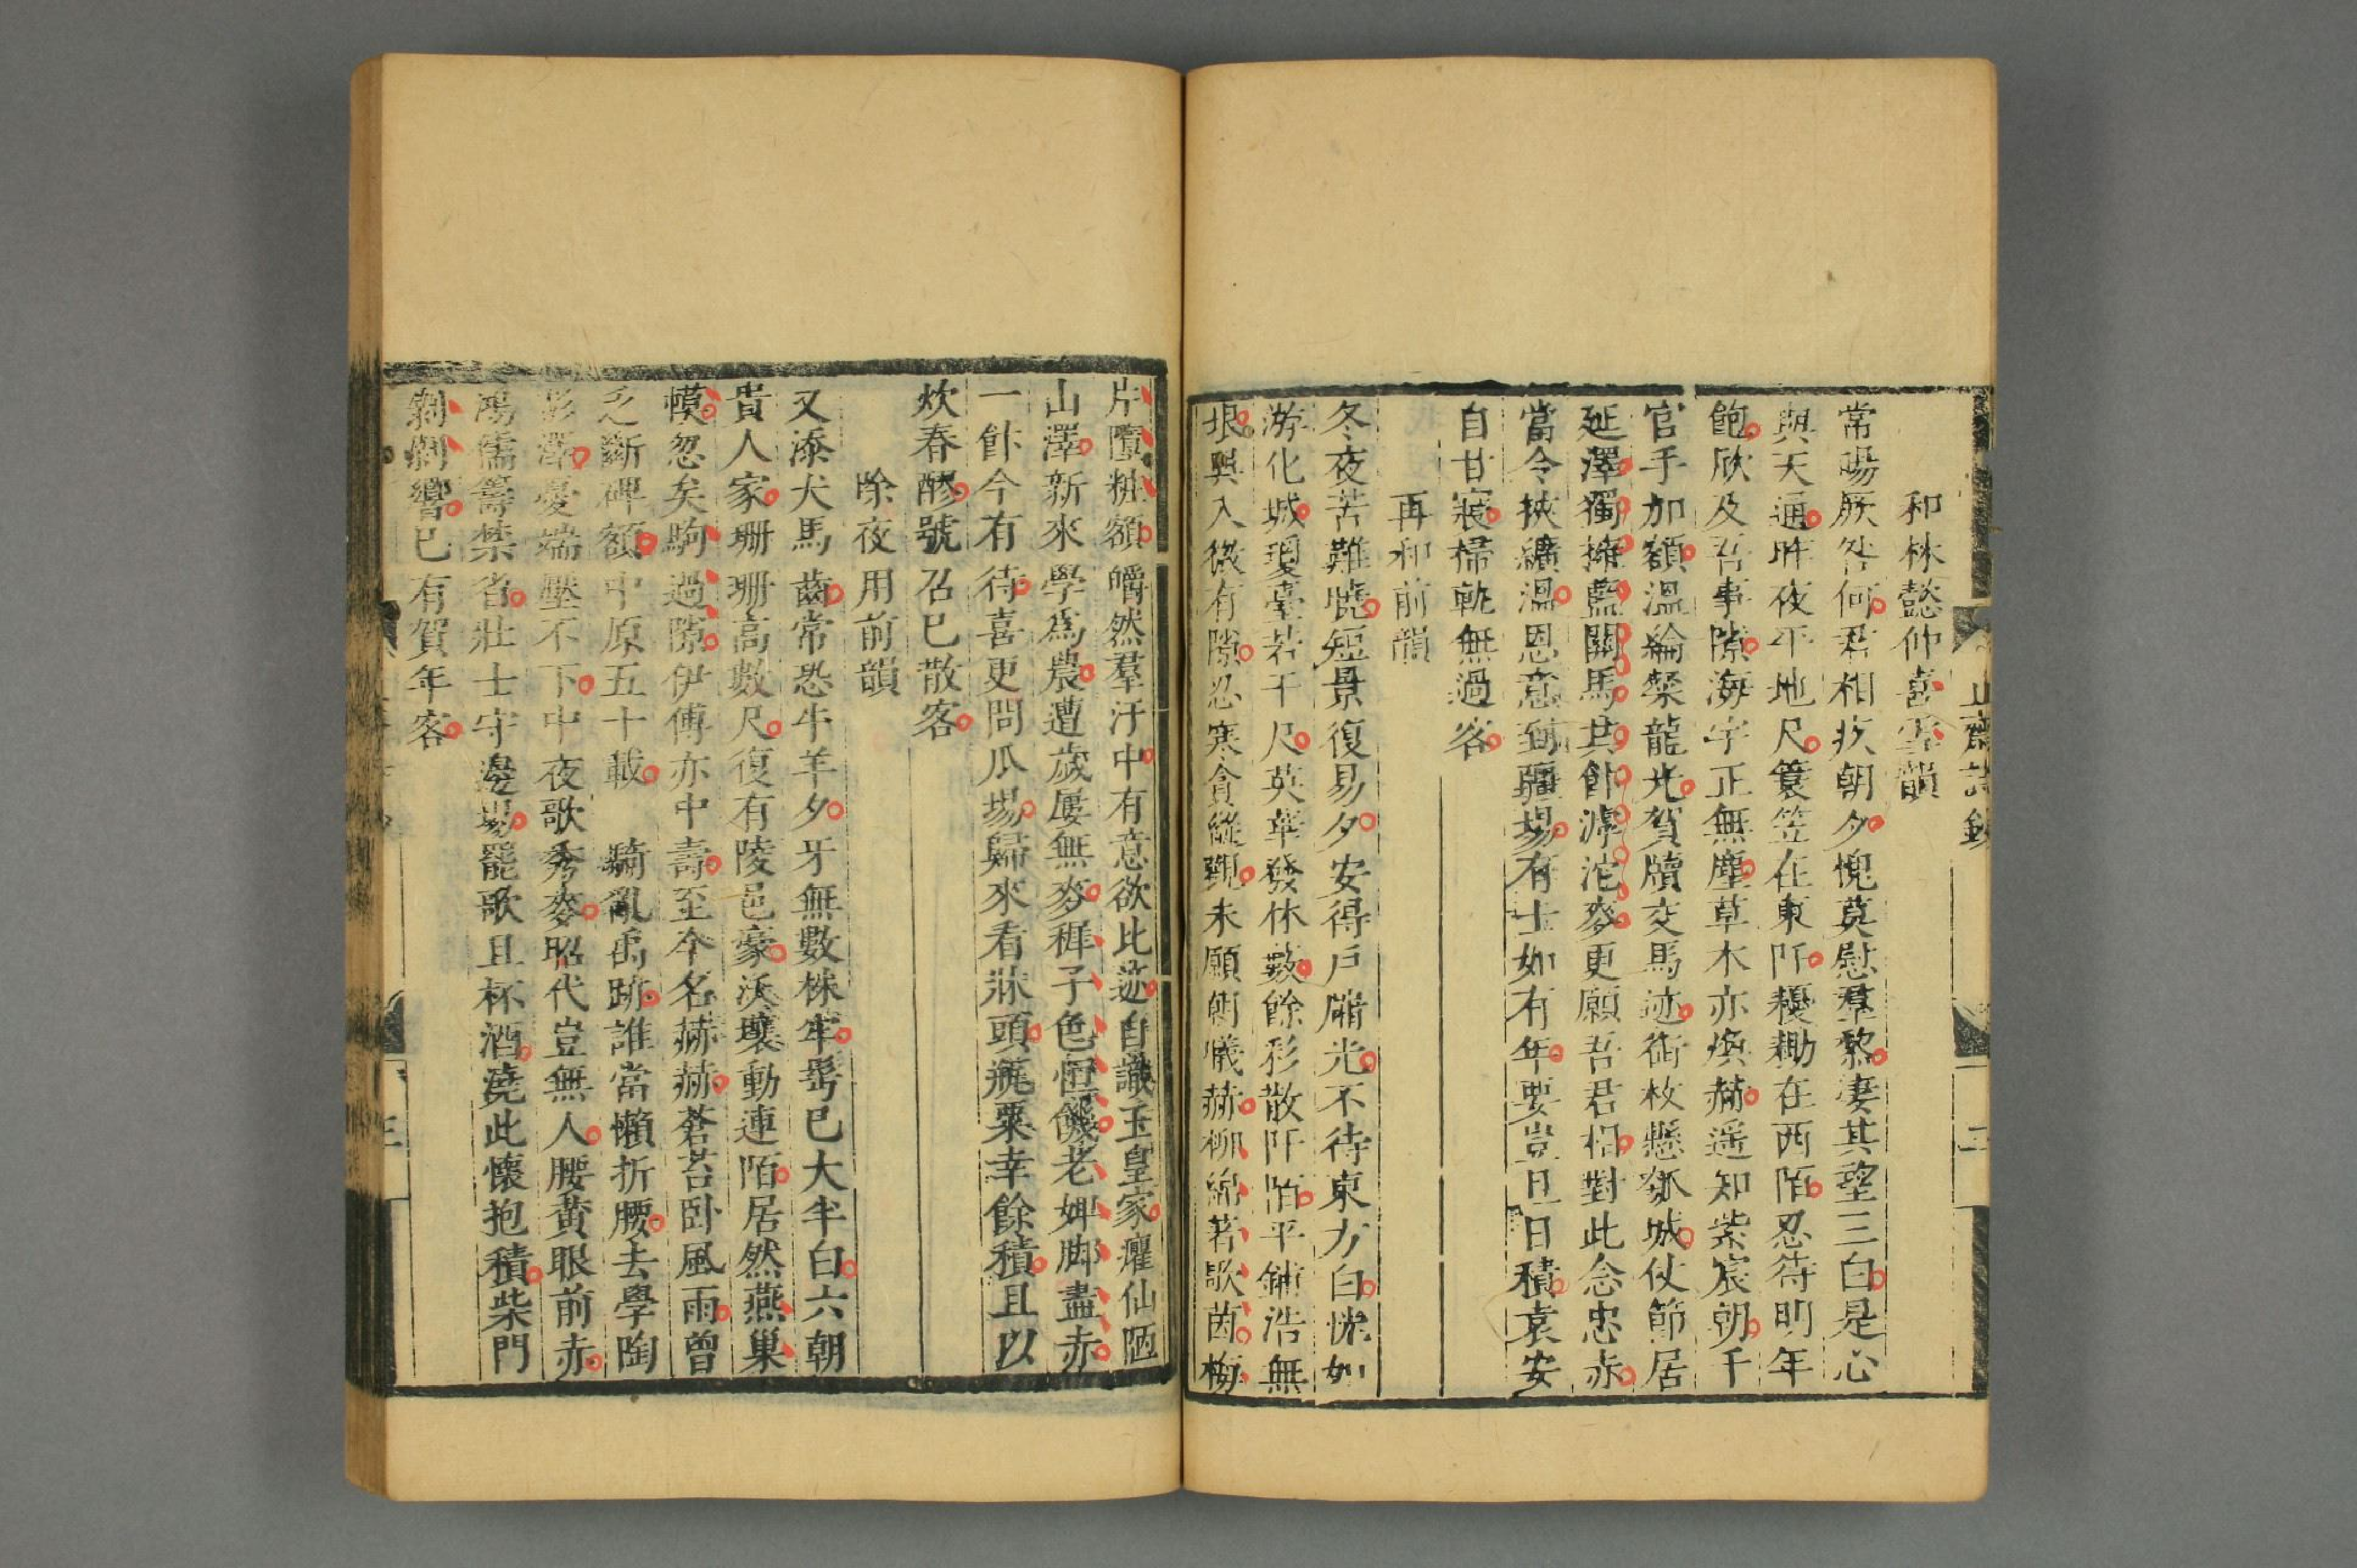 和林懿仲喜雪韻
常暘厥咎何君相疚朝夕愧莫慰羣黎凄其望三白是心
與天通昨夜平地尺簑笠在東阡耰耡在西陌忍待明年
飽欣及吾事隙海宇正無塵草木亦煥赫遥知紫宸朝千
官手加額溫綸槩龍光賀牘交馬迹銜枚懸瓠城仗節居
延澤獨擁藍關馬共飰滹沱麥更願吾君相對此念忠赤
當令挾纊溫恩意到疆場有士如有年要豈旦日積袁安
自甘寢掃軌無過客
再和前韻
冬夜苦難曉短景復易夕安得戶牖光不待東方白恍如
游化城瓊臺若干尺英華發休數餘彩散阡陌平鋪浩無
垠興入微有隙忍寒貪縱觀未願朝曦赫柳綿著歌茵梅
片墮粧額皭然羣汙中有意欲比迹自識玉皇家癯仙陋
山澤新來學為農遭歲屢無麥稚子色恒饑老婢脚盡赤
一飰今有待喜更問瓜場歸來看牀頭瓶粟幸餘積且以
炊春醪號召已散客
除夜用前韻
又添犬馬齒常恐牛羊夕牙無數株牢髩已大半白六朝
貴人家珊珊高數尺復有陵邑豪沃壤動連陌居然燕巢
幙忽矣駒過隙伊傅亦中壽至今名赫赫蒼苔卧風雨曾
乏斷碑額中原五十載 騎亂禹跡誰當懶折腰去學陶
彭澤憂端壓不下中夜歌秀麥昭代豈無人腰黃眼前赤
鴻儒籌禁省壯士守邊場罷歌且杯酒澆此懷抱積柴門
剝剝響已有賀年客
山齋詩鈔
二
三